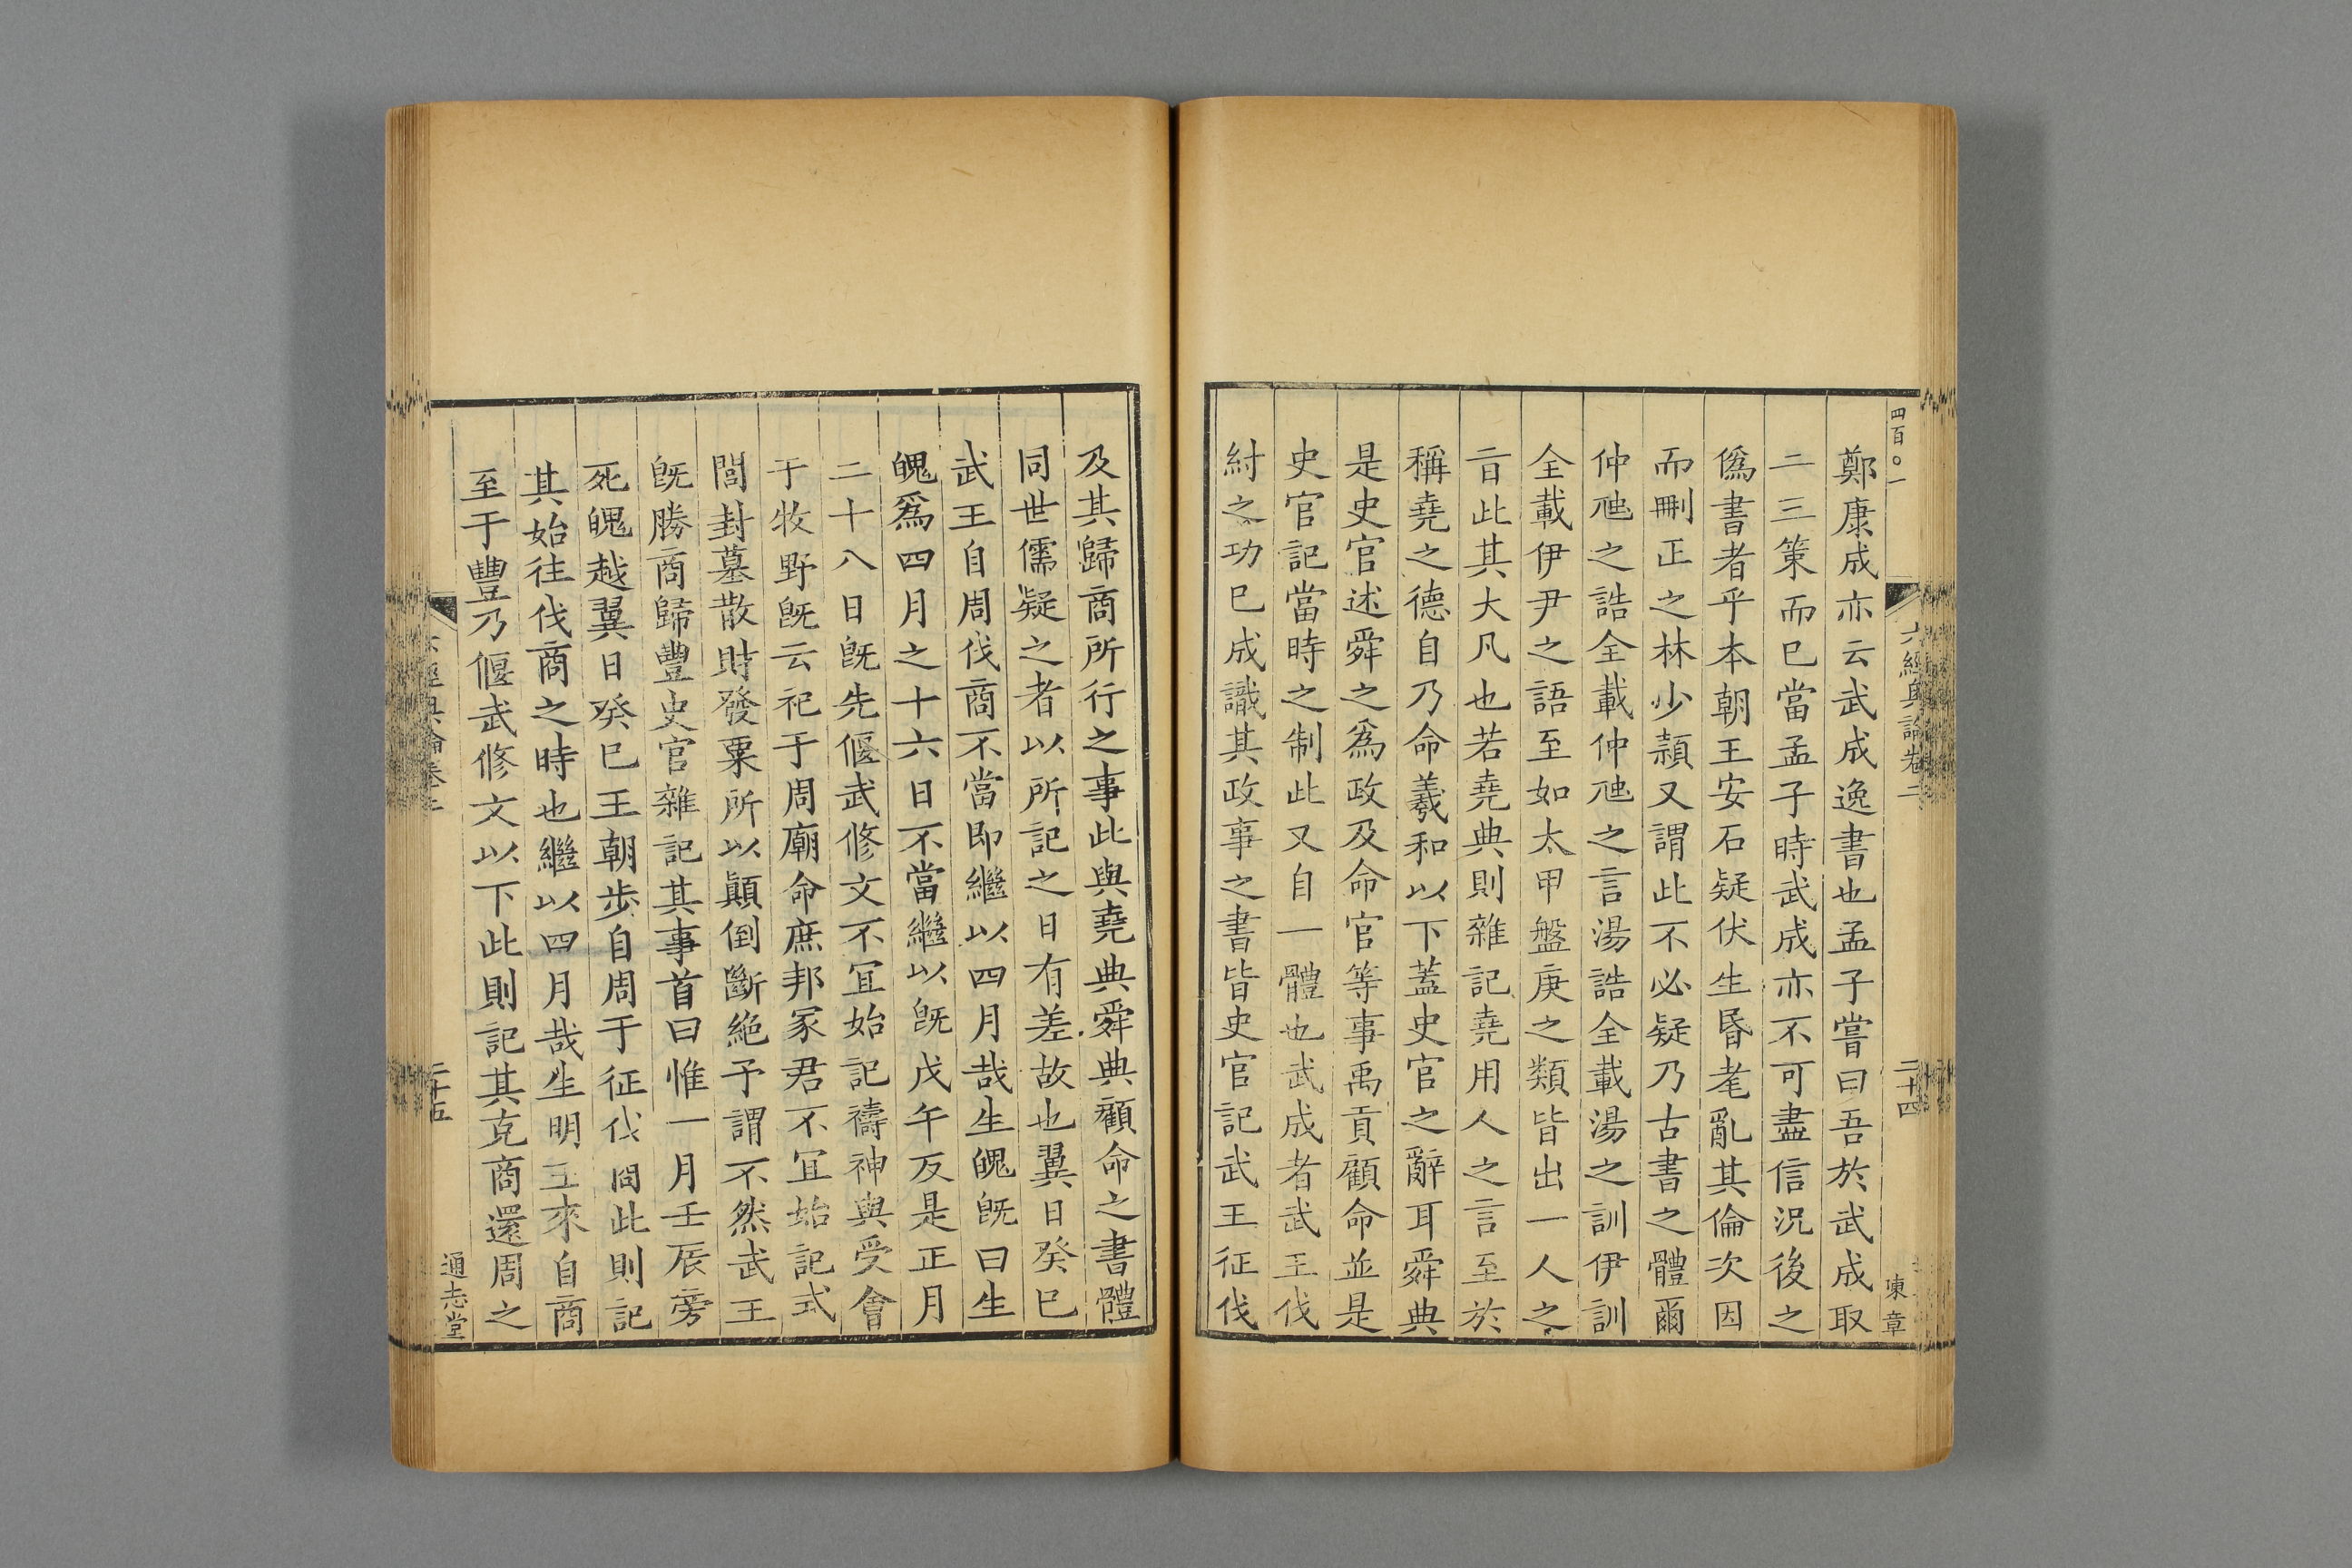 四百〇一
六經奧論卷二
二十四
陳章
鄭康成亦云武成逸書也孟子嘗曰吾於武成取
二三策而已當孟子時武成亦不可盡信況後之
僞書者乎本朝王安石疑伏生昏耄亂其倫次因
而刪正之林少頴又謂此不必疑乃古書之體爾
仲虺之誥全載仲虺之言湯誥全載湯之訓伊訓
全載伊尹之語至如太甲盤庚之類皆出一人之
言此其大凡也若堯典則雜記堯用人之言至於
稱堯之德自乃命羲和以下蓋史官之辭耳舜典
是史官述舜之爲政及命官等事禹貢顧命並是
史官記當時之制此又自一體也武成者武王伐
紂之功已成識其政事之書皆史官記武王征伐
及其歸商所行之事此與堯典舜典顧命之書體
同世儒疑之者以所記之日有差故也翼日癸巳
武王自周伐商不當即繼以四月哉生魄旣曰生
魄爲四月之十六日不當繼以旣戊午反是正月
二十八日旣先偃武修文不冝始記禱神與受會
于牧野旣云祀于周廟命庶邦冢君不冝始記式
閭封墓散財發粟所以顚倒斷絶予謂不然武王
旣勝商歸豐史官雜記其事首曰惟一月壬辰旁
死魄越翼日癸巳王朝步自周于征伐商此則記
其始往伐商之時也繼以四月哉生明王來自商
至于豐乃偃武修文以下此則記其克商還周之
六經奧論卷二
二十五
通志堂